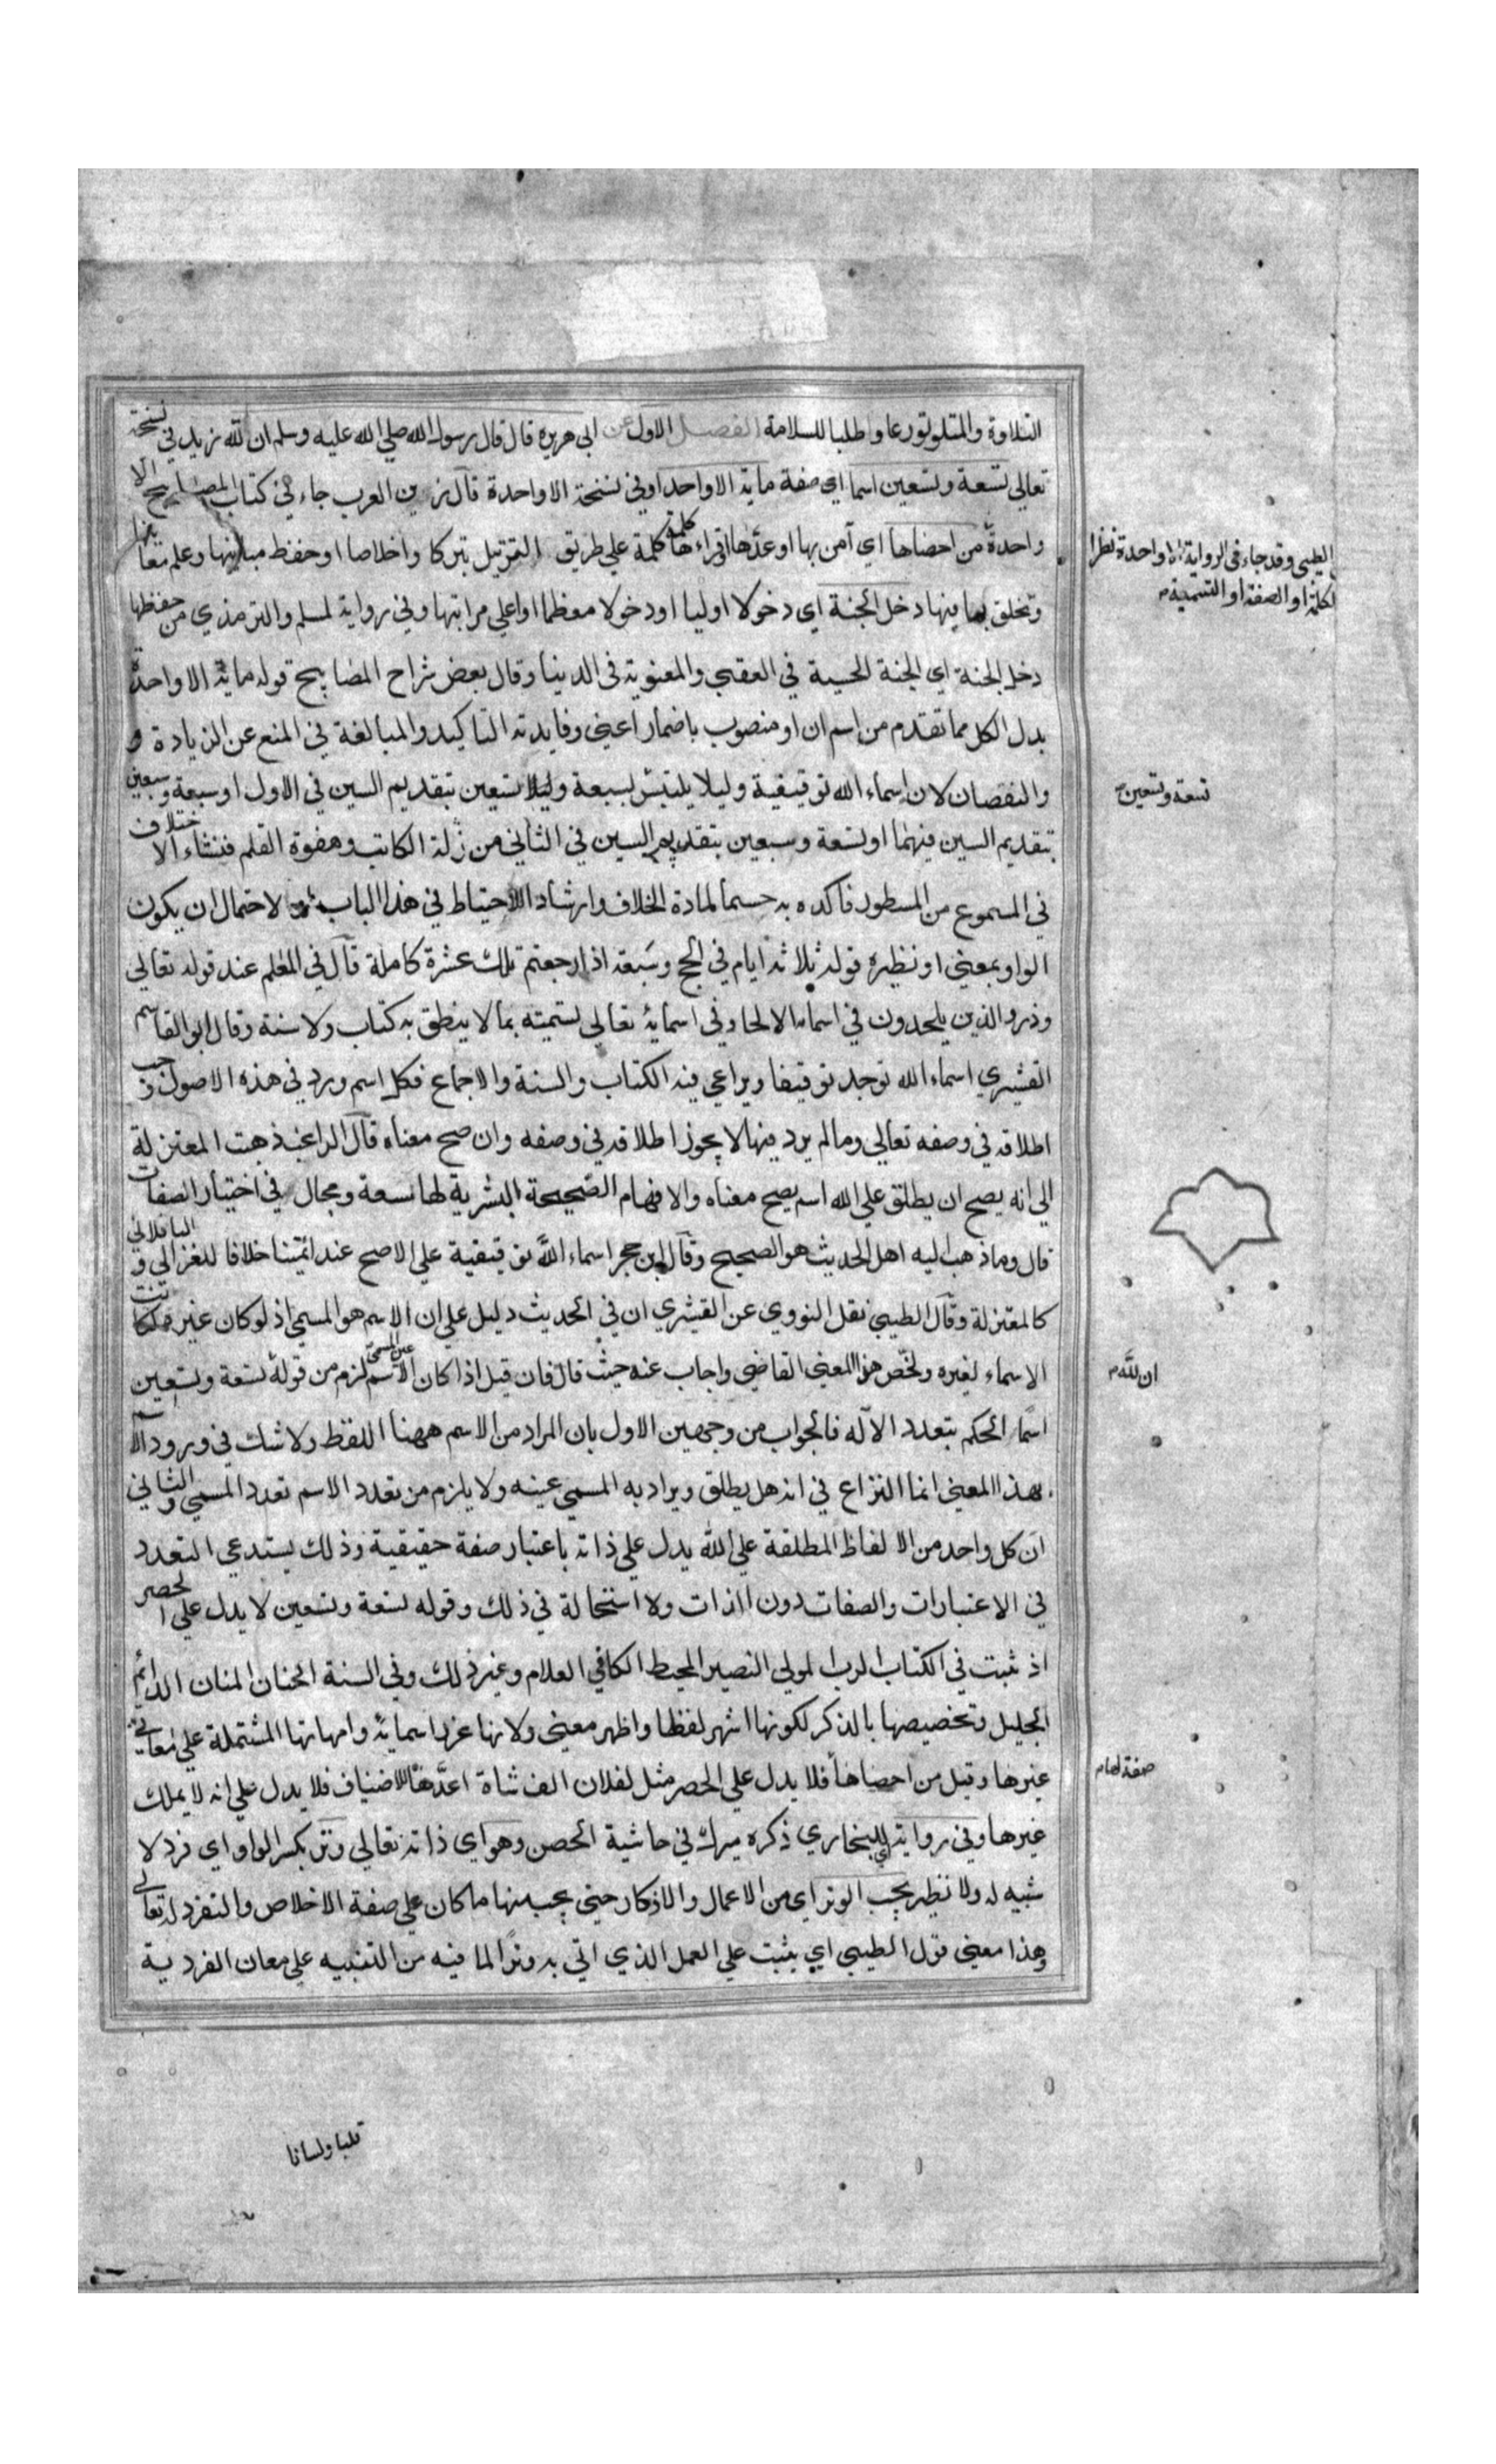 التلاوة والمتلو تورعا واطلبا للسلامة الفصل الاول عن ابي هريرة قال قال رسول الله صلي الله عليه وسلم ان لله زيد في نسخة
تعالي تسعة وتسعين اسما اي صفة ماية الا واحدا وفي نسخة الا واحدة قال زين العرب جاء في كتاب المصابيح الا
واحدة من احصاها اي آمن بها او عدها اقراءها كلمة كلمة علي طريق الترتيل تبركا واخلاصا او حفظ مبانيها وعلم معانيها
وتخلق بما فيها دخل الجنة اي دخولا اوليا او دخولا معظما او اعلي مراتبها وفي رواية لمسلم والترمذي من حفظها
دخل الجنة اي الجنة الحسية في العقبي والمعنوية في الدنيا وقال بعض شراح المصابيح قوله ماية الا واحدة
بدل الكل مما تقدم من اسم ان او منصوب باضمار اعني وفايدته التاكيد والمبالغة في المنع عن الزيادة و
والنقصان لان اسماء الله توقيفية وليلا يلتبس بسبعة وليلا تسعين بتقديم السين في الاول او سبعة وسبعين
بتقديم السين فيهما او تسعة وسبعين بتقديم السين في الثاني من زلة الكاتب وهفوة القلم فنشاء الاختلاف
في المسموع من المسطور فاكده به حسما لمادة الخلاف وارشاد الاحتياط في هذا الباب لاحتمال ان يكون
الواو بمعني او نظيره قوله ثلاثة ايام في الحج وسبعة اذا رجعتم تلك عشرة كاملة قال في المعلم عند قوله تعالي
وذروا الذين يلحدون في اسماءه الالحاد في اسمايه تعالي تسميته بما لا ينطق به كتاب ولا سنة وقال ابو القاسم
القشيري اسماء الله توجد توقيفا ويراعي فيه الكتاب والسنة والاجماع فكل اسم ورد في هذه الاصول وجب
اطلاقه في وصفه تعالي وما لم يرد فيها لا يجوز اطلاقه في وصفه وان صح معناه قال الراغب ذهبت المعتزلة
الي انه يصح ان يطلق علي الله اسم يصح معناه والافهام الصحيحة البشرية لها سعة ومجال في اختيار الصفات
قال وما ذهب اليه اهل الحديث هو الصحيح وقال ابن حجر اسماء الله توقيفية علي الاصح عند ائمتنا خلافا للغزالي والباقلاني
كالمعتزلة وقال الطيبي نقل النووي عن القشيري ان في الحديث دليل علي ان الاسم هو المسمي اذ لو كان غيره لكانت
الاسماء لغيره ولخص هذا المعني القاضي واجاب عنه حيث قال فان قيل اذا كان الاسم عين المسمي لزم من قوله تسعة وتسعين
اسما الحكم بتعدد الآله فالجواب من وجهين الاول بان المراد من الاسم ههنا اللفظ ولا شك في ورود الاسم
بهذا المعني انما النزاع في انه هل يطلق ويراد به المسمي عينه ولا يلزم من تعدد الاسم تعدد المسمي والثاني
ان كل واحد من الالفاظ المطلقة علي الله يدل علي ذاته باعتبار صفة حقيقية وذلك يستدعي التعدد
في الاعتبارات والصفات دون الذات ولا استحالة في ذلك وقوله تسعة وتسعين لا يدل علي الحصر
اذ ثبت في الكتاب الرب المولي النصير المحيط الكافي العلام وغير ذلك وفي السنة الحنان المنان الدائم
الجليل وتخصيصها بالذكر لكونها اشهر لفظا واظهر معني ولانها غرر اسمايه وامهاتها المشتملة علي معاني
غيرها وقيل من احصاها فلا يدل علي الحصر مثل لفلان الف شاة اعدها للاضياف فلا يدل علي انه لا يملك
غيرها وفي رواية للبخاري ذكره ميرك في حاشية الحصن وهو اي ذاته تعالي وتر بكسر الواو اي فرد لا
شبيه له ولا نظير يحب الوتر اي من الاعمال والاذكار حيني يحب منها ما كان علي صفة الاخلاص والتفرد له تعالي
وهذا معني قول الطيبي اي يثبت علي العمل الذي اتي به وترا لما فيه من التنبيه علي معان الفردية
الطيبي وقد جاء في الرواية الا واحدة نظرا
لكلمة او الصفة او التسمية
تسعة وتسعين
ان لله
صفة لهام
قلبا ولسانا